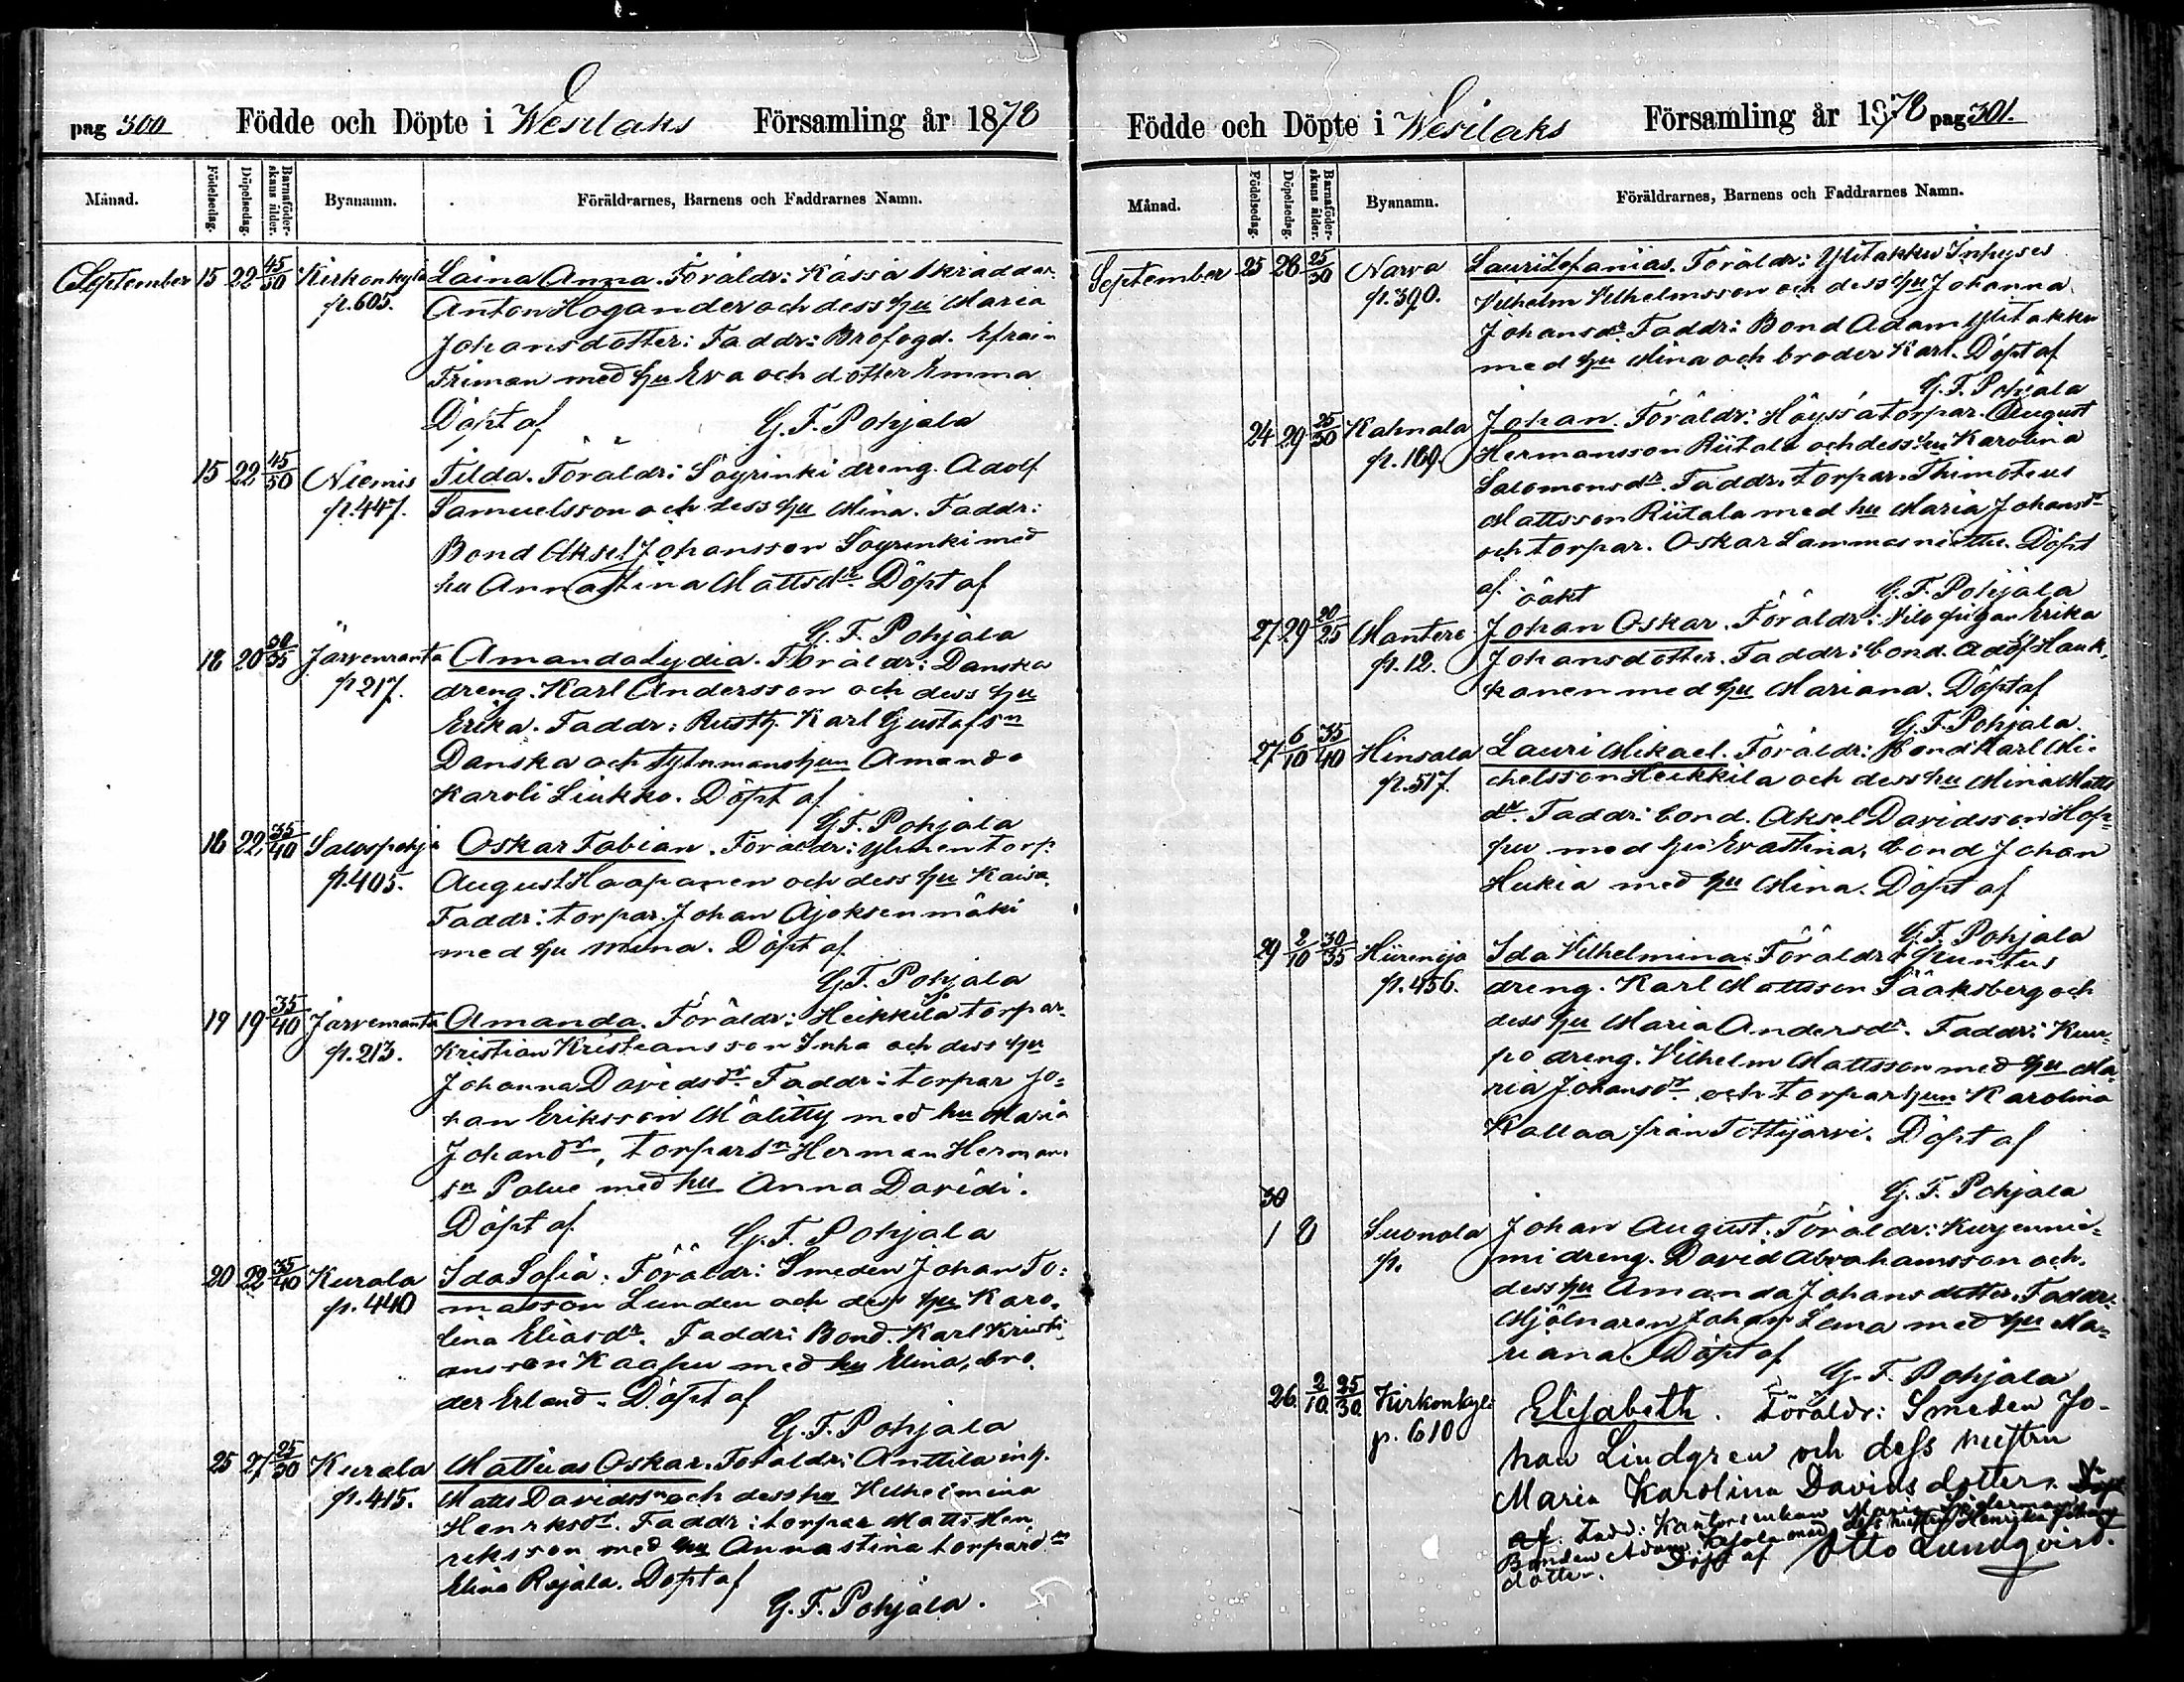 pag 300 Födde och Döpte i Wesilaks Församling år 1878
Månad. Födelsedag. Döpelsedag. Barnaföderskans ålder. Byanamn. Föräldrarnes, Barnens och Faddrarnes Namn.
September 15 22 45/50 Kirkonkylä Laina Anna. Föräldr: Kässä skräddar.
p. 605. Anton Hogander och dess hu Maria
Johansdotter: Faddr: Brofogd. Efraim
Friman med hu Eva och dotter Emma
Döpt af G. F. Pohjala
15 22 45/50 Niemis Tilda. Föräldr: Soyrinki dreng. Adolf
p. 447. Samuelsson och dess hu Mina. Faddr:
Bond Aksel Johansson Soyrinki med
hu Annastina Mattsdr. Döpt af
G. F. Pohjala
18 20 30/35 Järvenranta Amanda Lydia. Föräldr: Danska
p 217. dreng. Karl Andersson och dess hu
Erika. Faddr: Rusth. Karl Gustafsn
Danska och hun Amanda
Karoli Liukko. Döpt af
G. F. Pohjala
18 22. 35/40 Salospohja Oskar Fabian. Föräldr: Ylinen torp.
p. 405. August Haapanen och dess hu Kaisa.
Faddr: torpar. Johan Ajoksenmäki
med hu Mina. Döpt af
G. F. Pohjala
19 19 35/40 Järvenranta Amanda. Föräldr: Heikkilä torpar.
p. 213. Kristian Kristiansson Inha och dess hu
Johanna Davidsdr. Faddr: torpar Jo=
han Eriksson Mälitty med hu Maria
Johansdr, torparsn Herman Herman
sn Palue med hu Anna Davidi.
Döpt af G. F. Pohjala
20 22 35/40 Kurala Ida Sofia. Föräldr: Smeden Johan To:
p. 440 masson Lunden och dess hu Karo.
lina Eliasdr. Faddr: Bond. Karl Kristi
ansson Kaapu med hu Elina, bro.
der Erland. Döpt af
G. F. Pohjala
25 27 25/30 Kurala Mattias Oskar. Föräldr: Anttila inh.
p. 415. Matts Davidssn och dess hu Vilhelmina
Henriksdr. Faddr: torpar Matts Hen
riksson med hu Annastina torpardr
Elina Rajala. Döpt af
G. F. Pohjala.
Födde och Döpte i Wesilaks Församling år 1878 pag 301.
Månad. Födelsedag. Döpelsedag. Barnaföderskans ålder. Byanamn. Föräldrarnes, Barnens och Faddrarnes Namn.
September 25 28 25/30 Narva Lauri Sefanias. Föräldr: Ylitakku Inhyses
p. 390. Vilhelm Vilhelmsson och dess hu Johanna
Johansdr. Faddr: Bond Adam Ylitakku
med hu Mina och broder Karl. Döpt af
G. F. Pohjala
24 29 25/30 Kahnala Johan. Föräldr: Höyssä torpar. August
p. 169. Hermansson Riitala och dess hu Karolina
Salomonsdr. Faddr. torpar. Thimoteus
Mattsson Riitala med hu Maria Johansdr
och torpar. Oskar Lammasniittu. Döpt
af G. F. Pohjala
27 29 20/25 Mantere Johan Oskar. Föräldr: pigan Erika
p. 12. Johansdotter. Faddr: bond. Adolf Hauk
kanen med hu Mariana. Döpt af
G. F. Pohjala
27 6/10 35/40 Hinsala Lauri Mikael. Föräldr: bond Karl Mi=
p. 517. chelsson Heikkilä och dess hu Mina Matts
dr. Faddr: bond. Aksel Davidsson Hop=
pu med hu Evastina, bond Johan
Hukia med hu Mina. Döpt af
G. F. Pohjala
29 2/10 30/35 Hiirenoja Ida Vilhelmina. Föräldr: Puntus
p. 456. dreng. Karl Mattsson Sääksberg och
dess hu Maria Andersdr. Faddr: Kur=
po dreng. Vilhelm Mattsson med hu Ma=
ria Johansdr. och torparhun Karolina
Kallaa från Tottijärvi. Döpt af
G. F. Pohjala
30
1 8 Suonola Johan August. Föräldr: Kurjennie=
p. mi dreng. David Abrahamsson och
dess hu Amanda Johansdotter. Faddr:
Mjölnaren Johan Lema med hu Ma=
riana. Döpt af
G. F. Pohjala
26. 2/10. 25/30. Kirkonkyl: Elisabeth. Föräldr: Smeden Jo-
p. 610 han Lindgren och dess hustru
Maria Karolina Davidsdotter. Döpt
af. Fadd: Kantorsenkan Maria Södermark,
Bonden Adam med dess hustru Henrika Johans
dotter. Döpt af Otto Lundqvist.